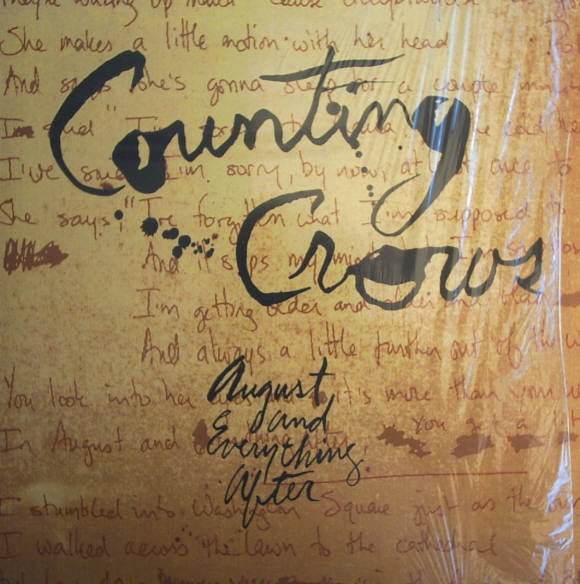 They're waking up Maria 'cause
She makes a little motion with her head
And says she's gonna sleep for a couple
Counting
said "I'm
I've said I'm sorry, by now, at least once to
She says, "I've forgotten what I'm supposed to
Crows
And it slips my mind
I'm getting older and older and
And always a little further out of the
August
and
Everything
After
You look into her it's more than your
In August and You get a
I stumbled into Washington Square just as the
I walked across the lawn to the cathedral